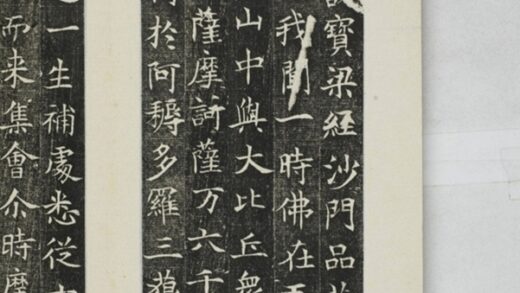 寶梁經沙門品
我聞一時佛在
山中與大比丘衆
薩摩訶薩万六千
於阿耨多羅三藐
一生補處悉從
而来集會尒時摩